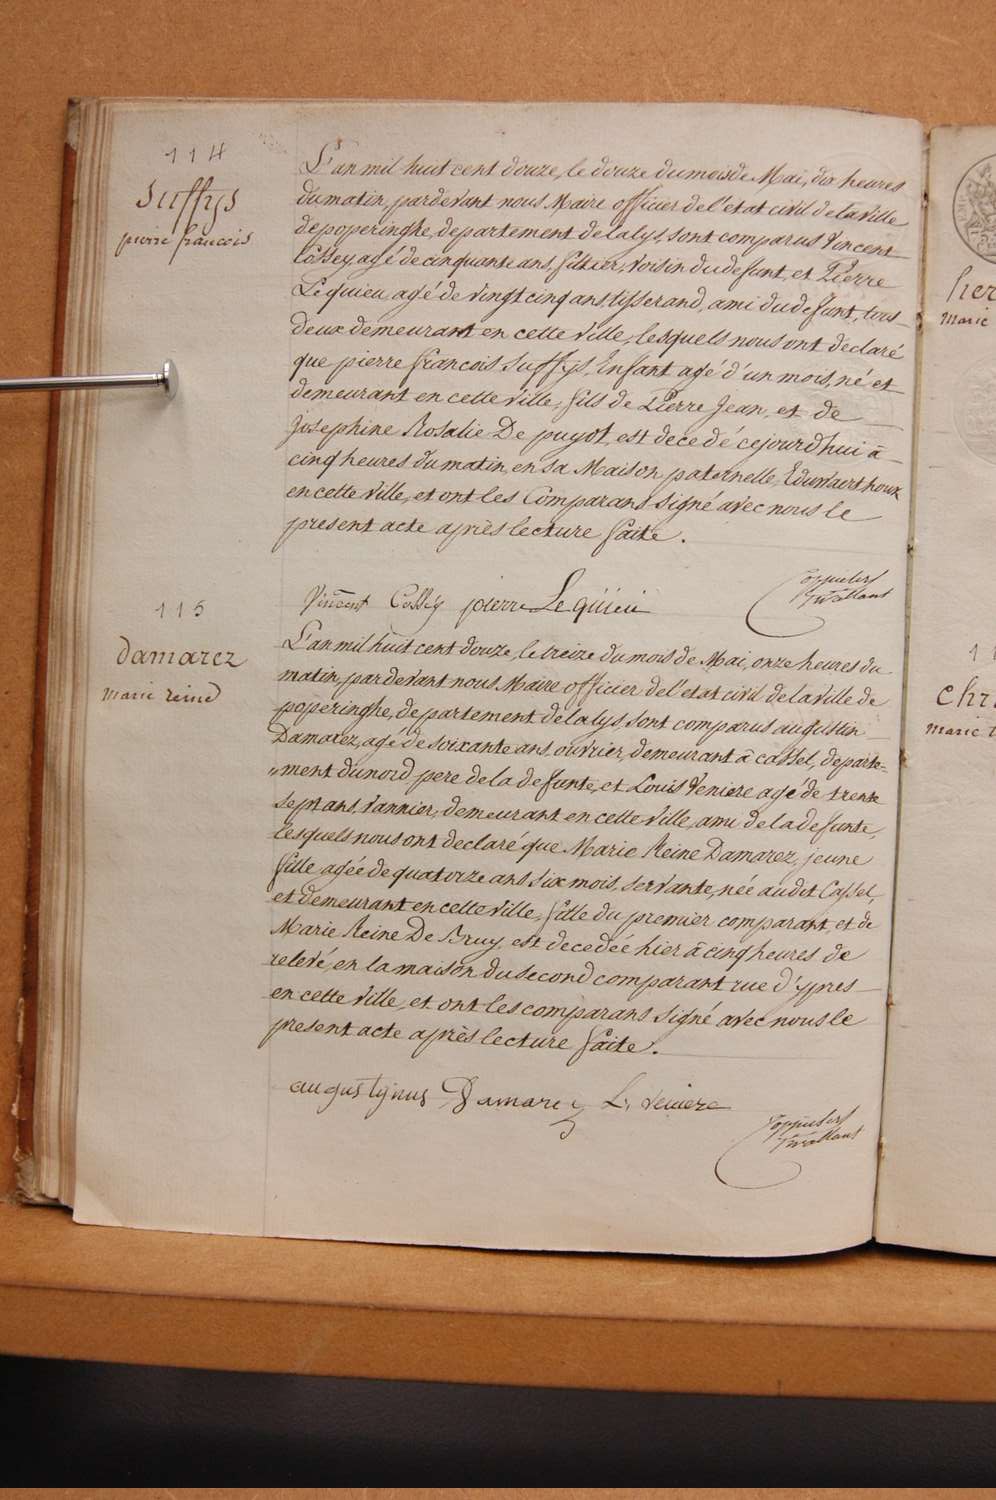 114
Suffys
pierre francois
L'an mil huit cent douze, le douze du mois de Mai, dix heures
du matin, pardevant nous Maire officier de l'etat civil de la ville
de poperinghe, departement de la lys, sont comparus Vincent
Cossey, agé de cinquante ans, filtier, voisin du defunt, et Pierre
Lequieu, agé de vingt cinq ans tisserand, ami du defunt, tous
deux demeurant en cette ville, lesquels nous ont déclaré
que pierre francois Suffys, Enfant agé d'un mois, né et
demeurant en cette ville, fils de Pierre Jean, et de
Josephine Rosalie De puyot, est decedé cejourd'hui à
cinq heures du matin, en sa Maison paternelle, Eduwaerthouk
en cette ville, et ont les Comparans signé avec nous le
present acte après lecture faite.
Vincent Cossey pierre Lequieu
115
Damarez
marie reine
L'an mil huit cent douze, le treize du mois de Mai, onze heures du
matin, pardevant nous Maire officier de l'etat civil de la ville de
poperinghe, departement de la lys, sont comparus augustin
Damarez, agé de soixante ans, ouvrier, demeurant à cassel, departe=
"ment du nord, pere de la defunte, et Louis Veniere agé de trente
sept ans, vannier, demeurant en cette ville, ami de la defunte,
lesquels nous ont declaré que Marie Reine Damarez, jeune
fille agée de quatorze ans six mois, servante, née au dit Cassel,
et demeurant en cette ville, fille du premier comparant, et de
Marie Reine De Bruy, est decedée hier à cinq heures de
relevé, en la maison du second comparant rue d'ypres
en cette ville, et ont les comparans signé avec nous le
present acte après lecture faite.
augustynus Damarez L. veniere
her
marie
11
chri
marie